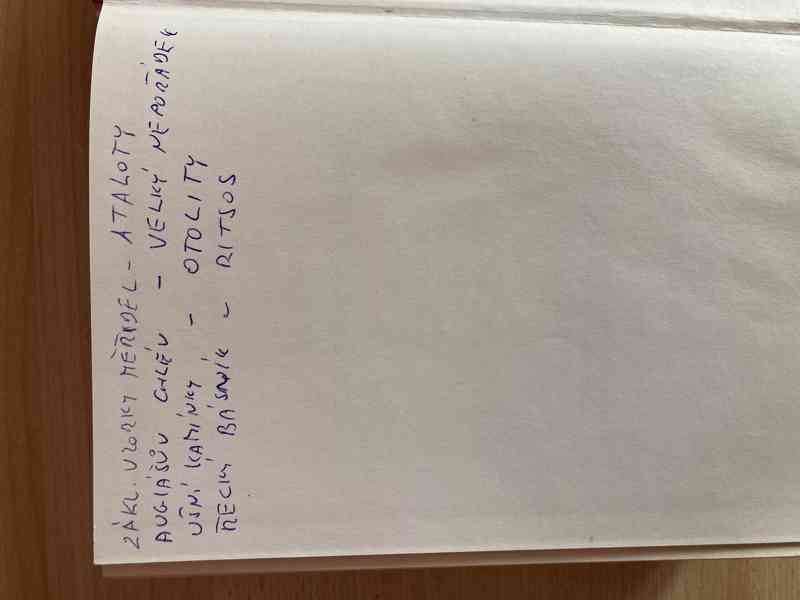 ZÁKL. VZORKY MĚŘIDEL – ATALOTY
AUGIÁŠŮV CHLÉV – VELKÝ NEPOŘÁDEK
UŠNÍ KAMÍNKY – OTOLITY
ŘECKÝ BÁSNÍK – RITSOS